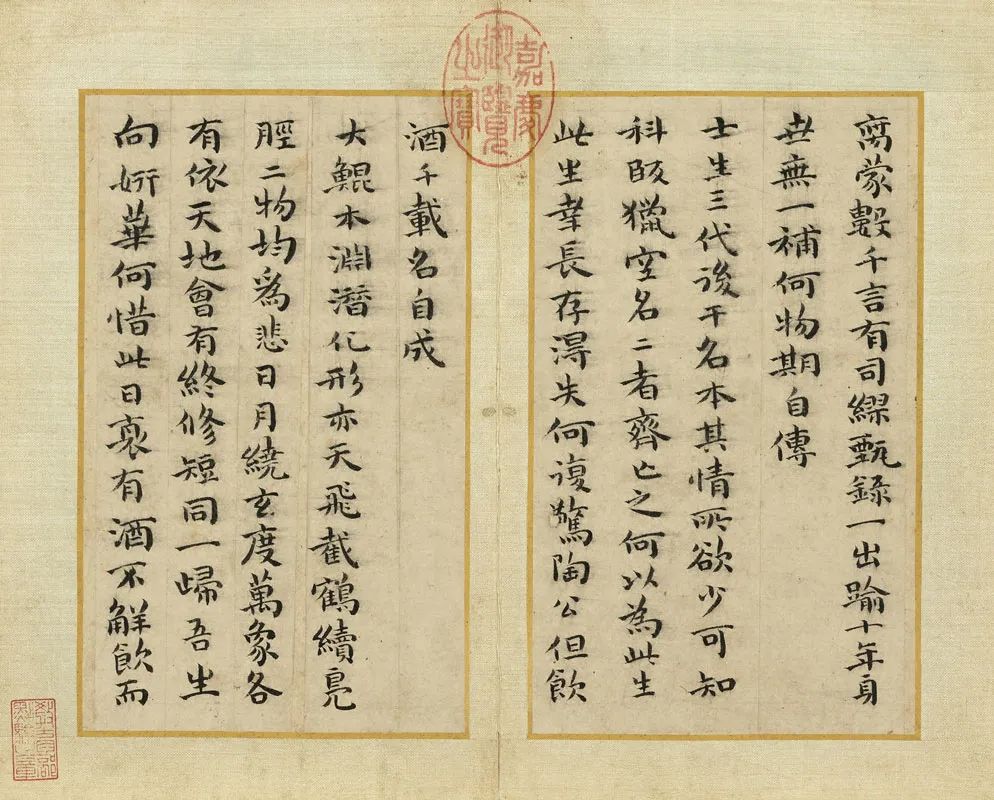 嘉慶御覽之寶
蒙千言有司繆甄錄一出踰十年身
世無一補何物期自傳
士生三代後干名本其情所欲少可知
科獵空名二者齊亡之何以為此生
此生幸長存得失何復驚陶公但飲
酒千載名自成
大鯤本淵潛化形亦天飛截鶴續鳧
脛二物均為悲日月繞玄度萬象各
有依天地會有終修短同一歸吾生
向妍華何惜此日衰有酒不解飲而